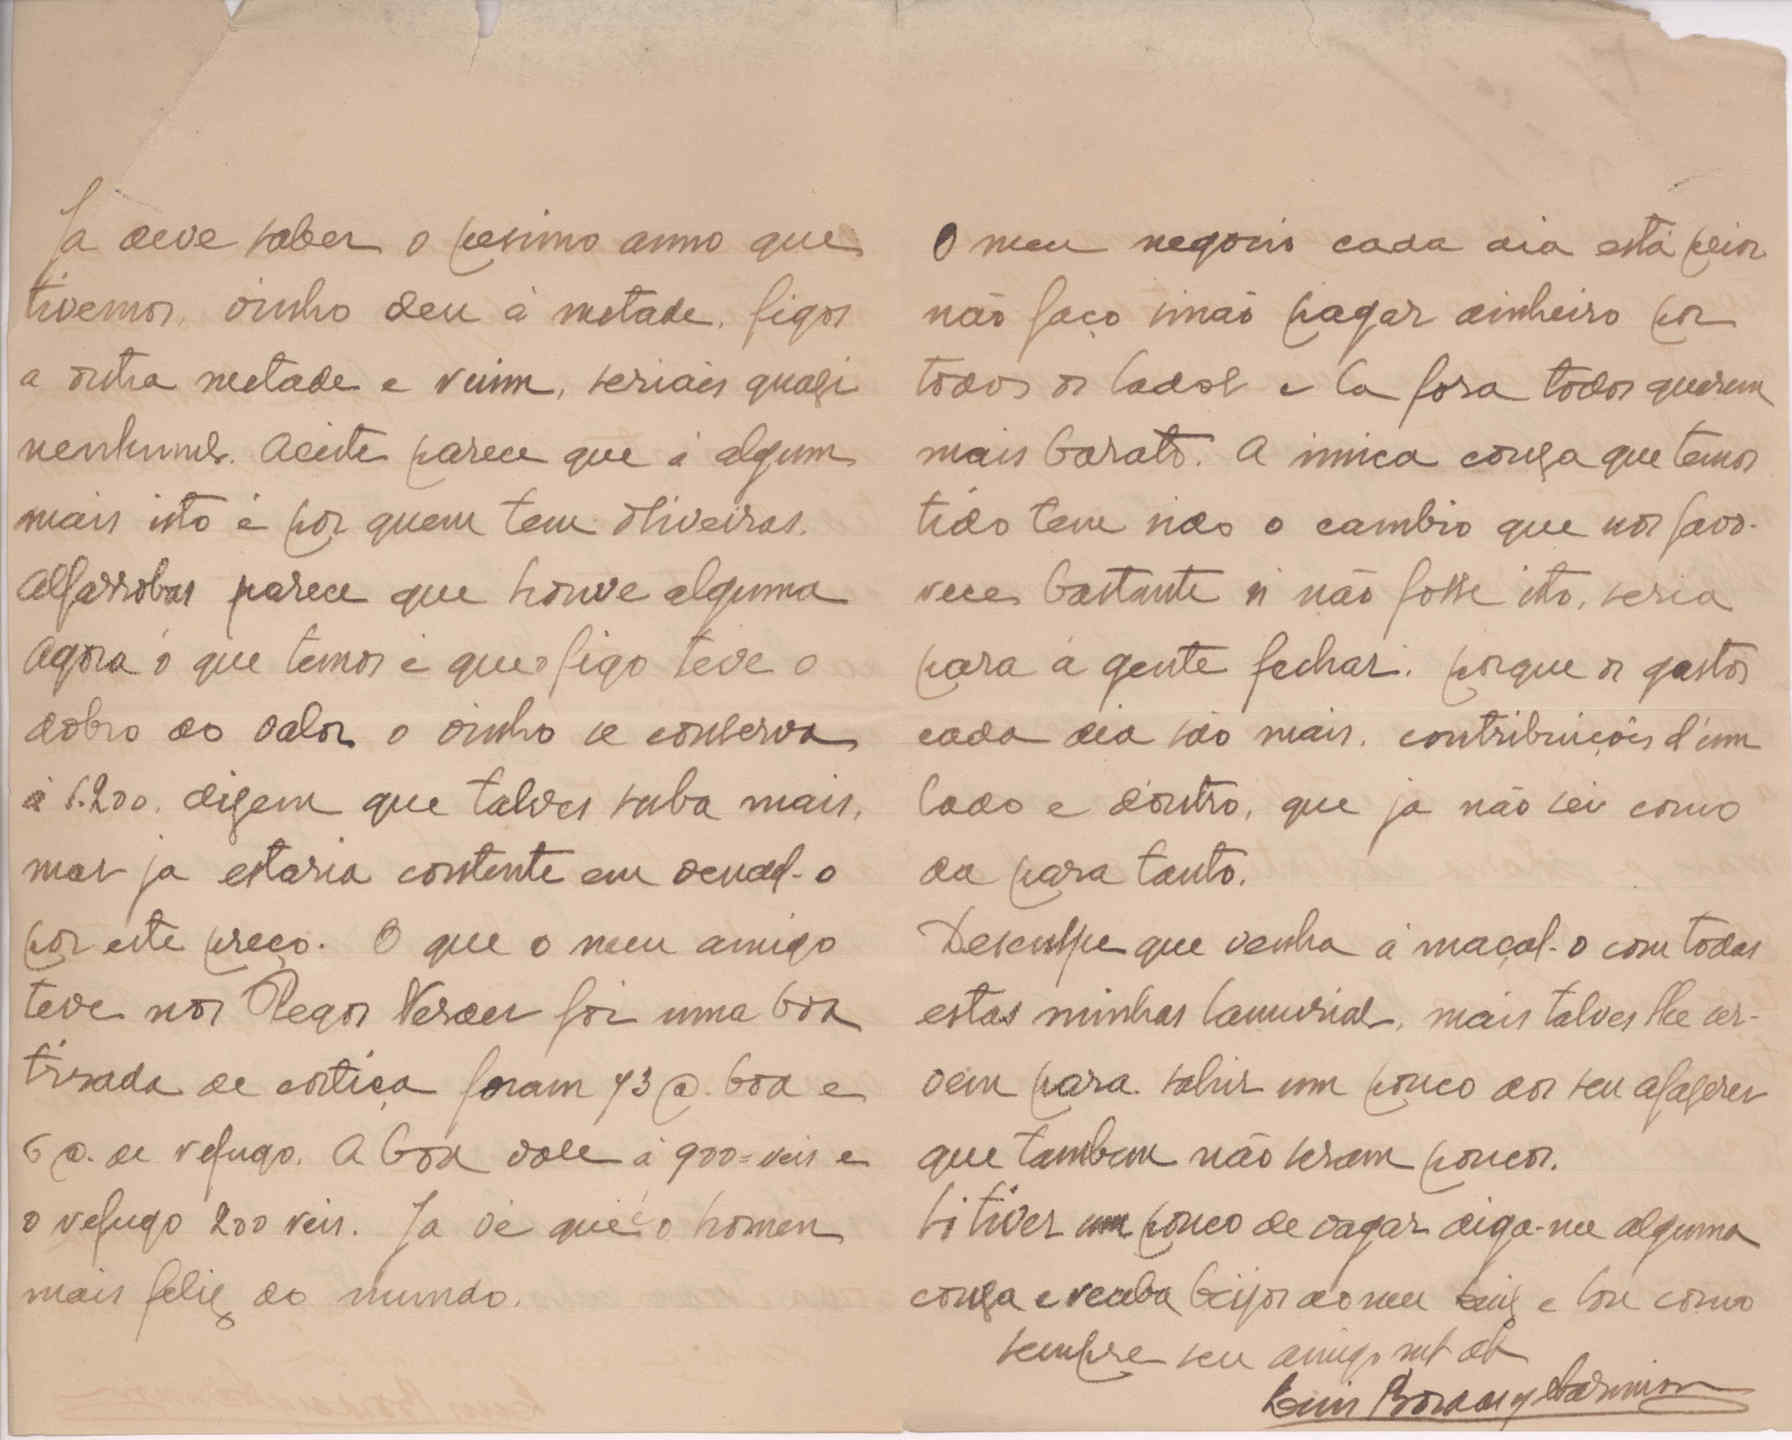 Ja deve saber o pesimo anno que
tivemos, vinho deu á metade, figos
a outra metade e ruim, seriais quasi
nenhums. Aceite parece que á algum
mais isto é por quem tem oliveiras.
Alfarrobas parece que houve alguma
Agora ó que temos é que o figo teve o
dobro do valor o vinho se conserva
á 1.200. dizem que talves suba mais,
mas ja estaria contente em vendel-o
por este preço. O que o meu amigo
teve nos Pegos Verdes foi uma boa
tirada de cortiça foram 73 @. boa e
6 @. de refugo. A boa vale á 900=reis e
o refugo 200 reis. Ja vé que é o homen
mais feliz do mundo.
O meu negocio cada dia está peior
não faço sinão pagar dinheiro por
todos os lados e la fora todos querem
mais barato. A unica couza que temos
tido tem sido o cambio que nos favo-
rece bastante si não fosse isto, seria
para á gente fechar. porque os gastos
cada dia são mais. contribuiçoês d'um
lado e d'outro, que ja não sei como
da para tanto.
Desculpe que venha á maçal-o com todas
estas minhas lamurias, mais talves lhe ser-
vem para sahir um pouco dos seu afazeres
que tambem não seram poucos.
Si tiver um pouco de vagar diga-me alguma
couza e receba beijos do meu Luiz e sou como
sempre seu amigo mt ob
Luis Bordas y